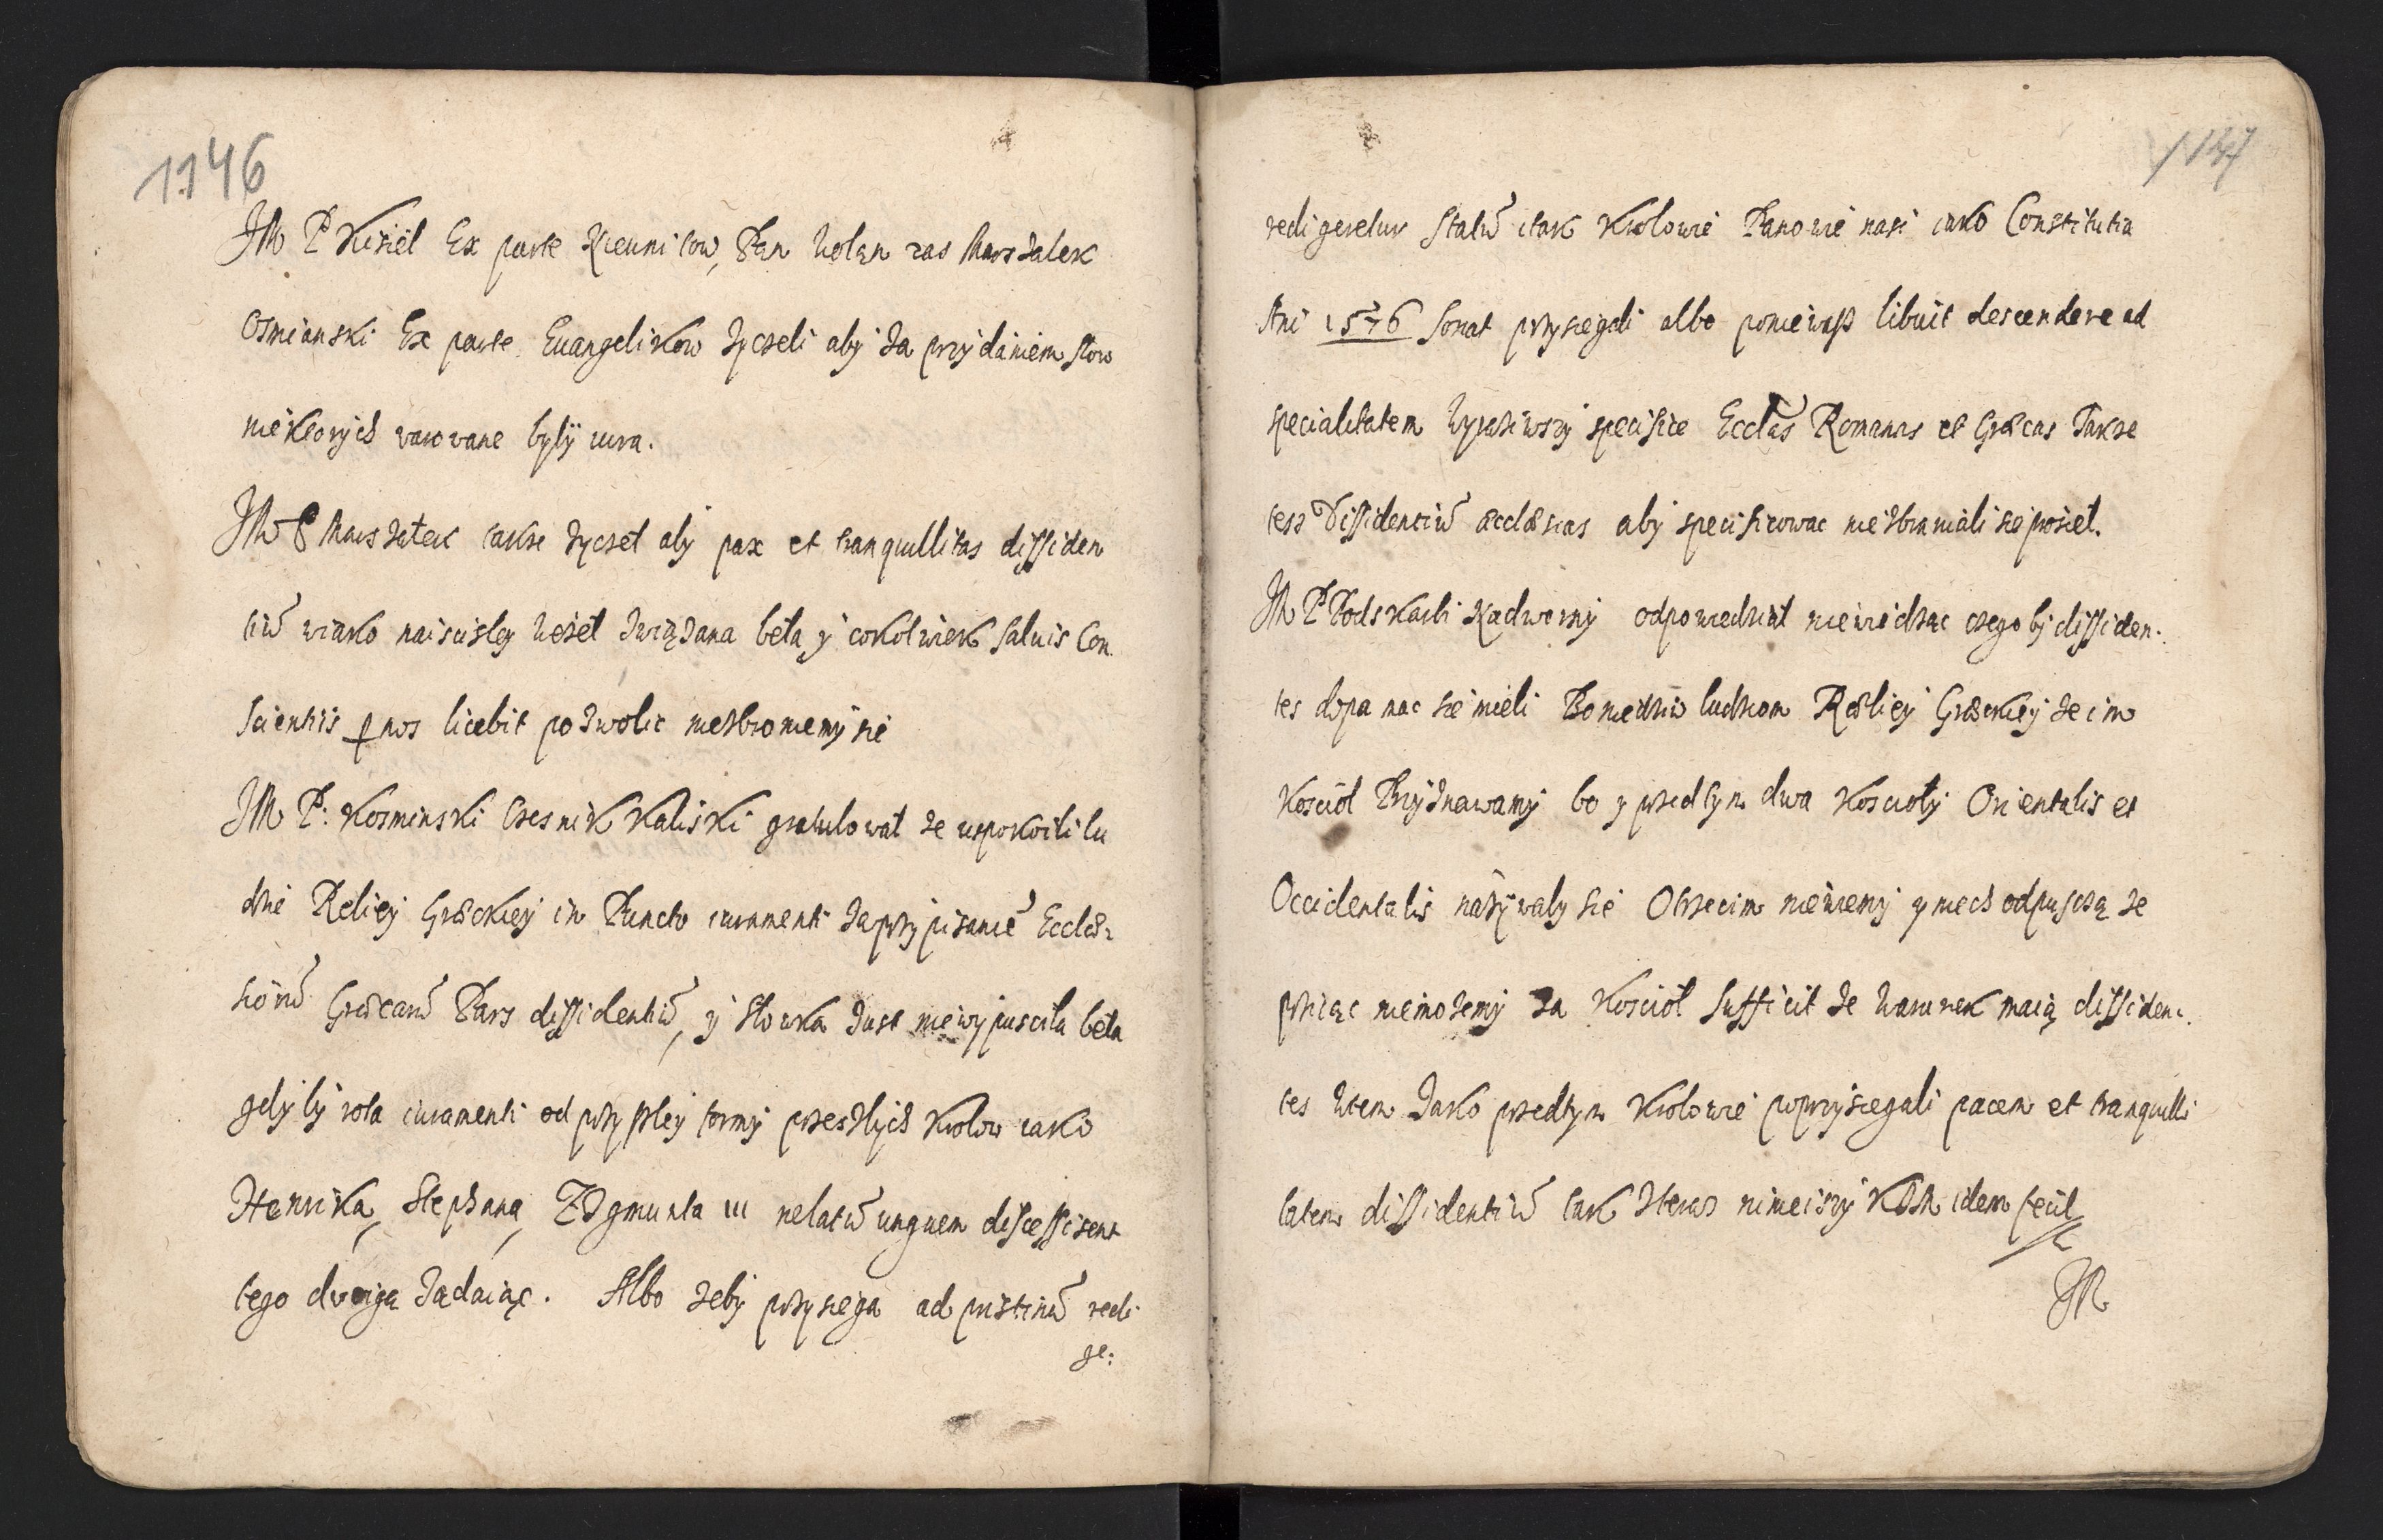 1146
JM P Kisiel Ex parte Nieunitow, Pan Wolan zas Marszalek
Osmianski Ex parte Euangelikow zyczeli aby za przydaniem slow
niektorych warowane byly iura.
JM P Marszalek takze zyczel aby pax et tranquillitas dissiden
tiũ wiako naiscisley wezel związana bela y cokolwiek saluis Con
scientiis p nos licebit pozwolic niezbroniemy sie
JM P: Kosminski Czesnik Kaliski gratulowal ze uspokoili lu
dzie Religy Græckiey in Puncto iuramenti za przypisanie Eccles
siarũ Græcarũ Pars dissidentiũ, y slowka iust niewypuscila bela
gdyby rota iuramenti od przyszley formy przeszlych Krolow iako
Henrika, Stephana, Zygmunta III nelatũ unguem discessisent
tego dwoiga ządaiąc. Albo zeby przysięga ad pristinũ redi
ge:
1147
redigeretur statũ itak Krolowie Panowie nasi iako Constitutia
Ani 1576 sonat przysiegali albo poniewasz libuit descendere ad
specialitatem wyraziwszy specifice Ecclãs Romanas et Græcas Takze
tesz Dissidentiũ æcclæsias aby specificowac niezbraniali sie prosiel.
JM P Podskarbi Nadworny odpowiedzial niewiedzac czego by dissiden.
tes dopanac sie mieli Boniewiem ludziom Religiey Græckiey ze im
Kosciol Przyznawamy bo y przedtym dwa Koscioly Orientalis et
Occidentalis nazywaly sie O trzecim niewiemy y niech odpuszczą ze
przeiąc niemozemy za Kosciol sufficit ze warunek maią dissiden.
tes wtem Jako przedtym Krolowie poprzysiegali pacem et tranquilli
tatem dissidentiũ tak y teraz ninieiszy KJM idem fecit
JM